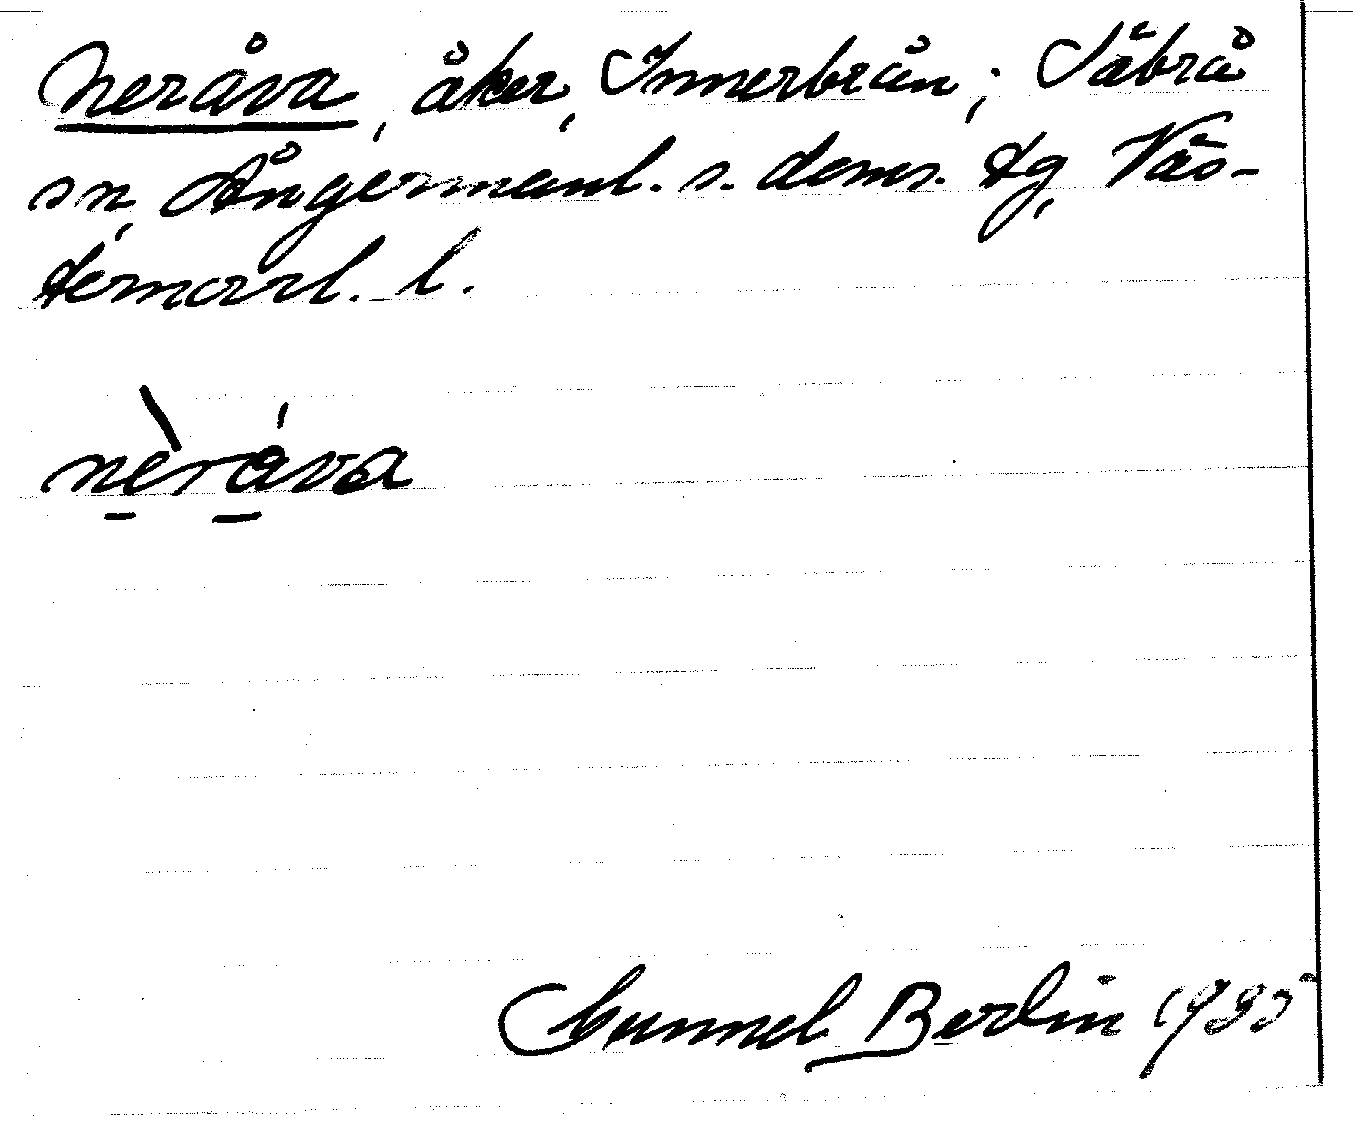 Neråva, åker, Innerbrån; Säbrå
sn, Ångermanl. s. doms. tg, Väs-
ternorrl. l.
nèráva
Gunnel Berlin 1935